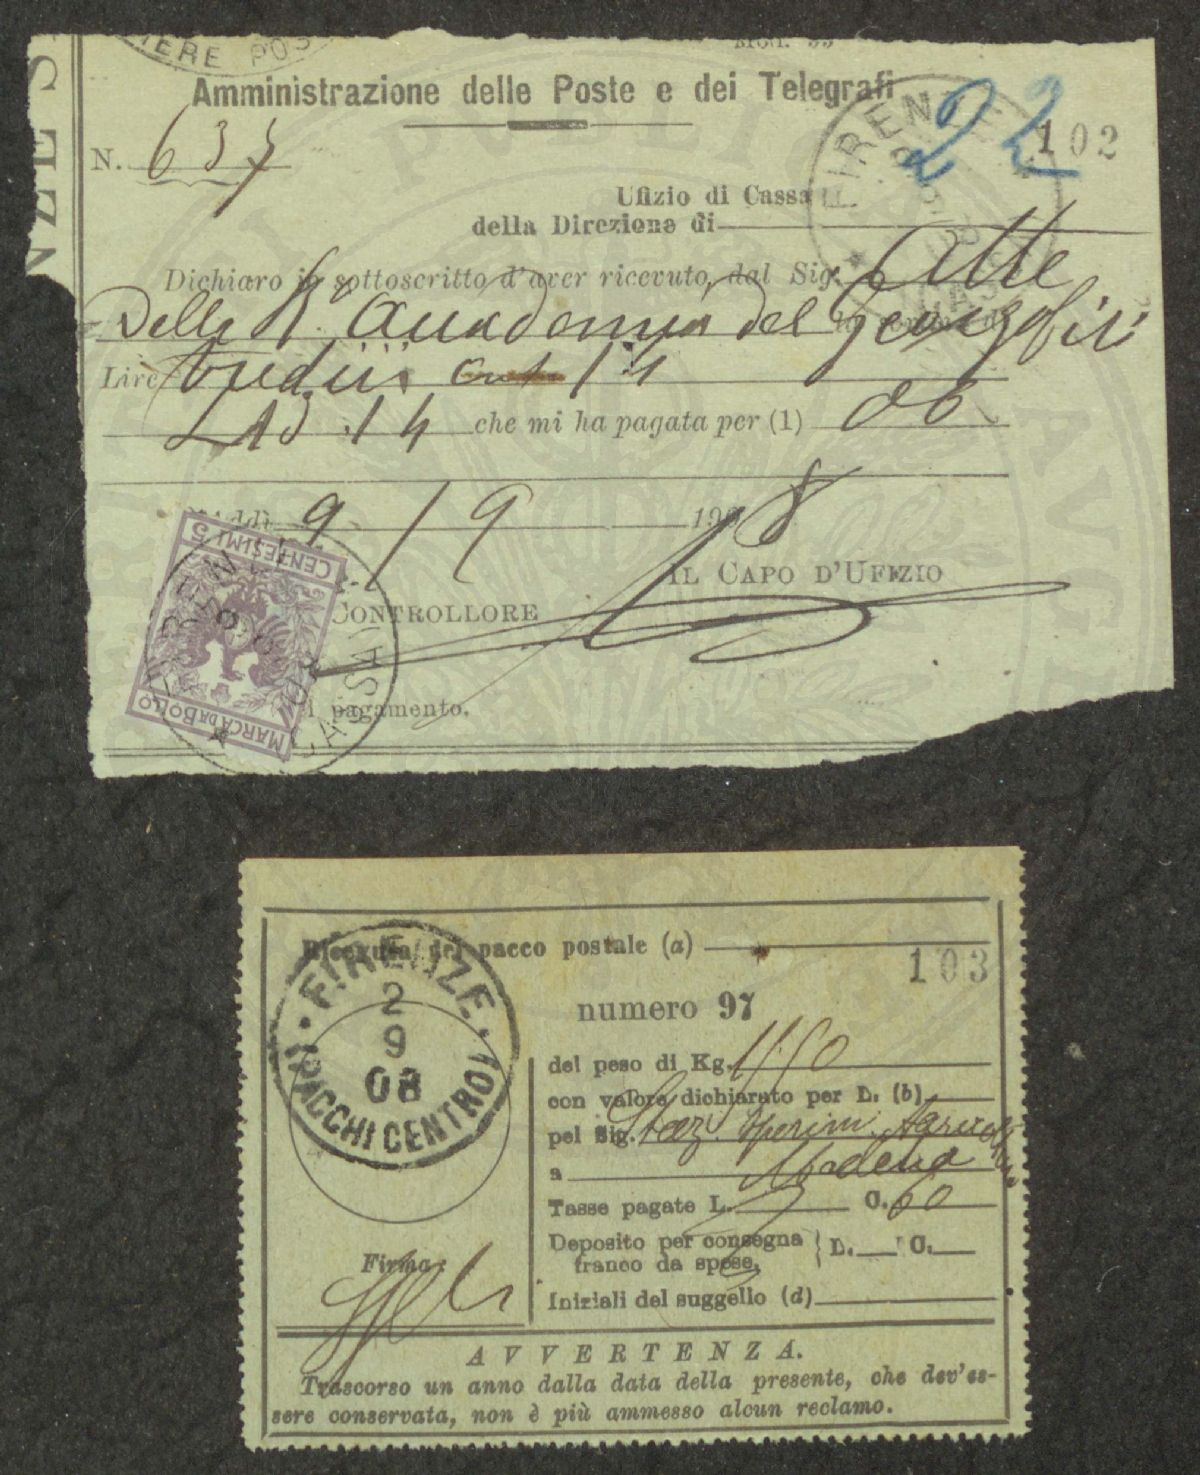 IERE POS
Mod. 55
Amministrazione delle Poste e dei Telegrafi
N. 637
22
102
FIRENZE
Ufizio di Cassa
della Direzione di
Dichiaro io sottoscritto d'aver ricevuto, dal Sig.
Della R. Accademia dei Georgofili
Lire tredici 14
L 13.14 che mi ha pagata per (1)
addì 9/9 1908
IL CAPO D'UFIZIO
CONTROLLORE
CENTESIMI 5
MARCA DA BOLLO
CASSA
i pagamento.
Ricevuta del pacco postale (a)
103
FIRENZE
2
9
08
(PACCHI CENTRO)
numero 97
del peso di Kg.
con valore dichiarato per L. (b)
pel Sig. Staz. Sperim. Agraria
a Modena
Tasse pagate L. C. 60
Deposito per consegna
franco da spese. L. C.
Firma:
Iniziali del suggello (d)
AVVERTENZA.
Trascorso un anno dalla data della presente, che dev'es-
sere conservata, non è più ammesso alcun reclamo.